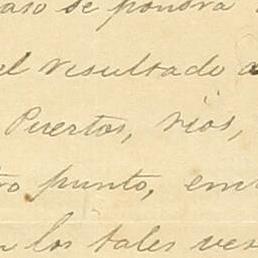 caso se pondrá
el resultado a
Puertos, rios,
ro punto, em
n los tales ves